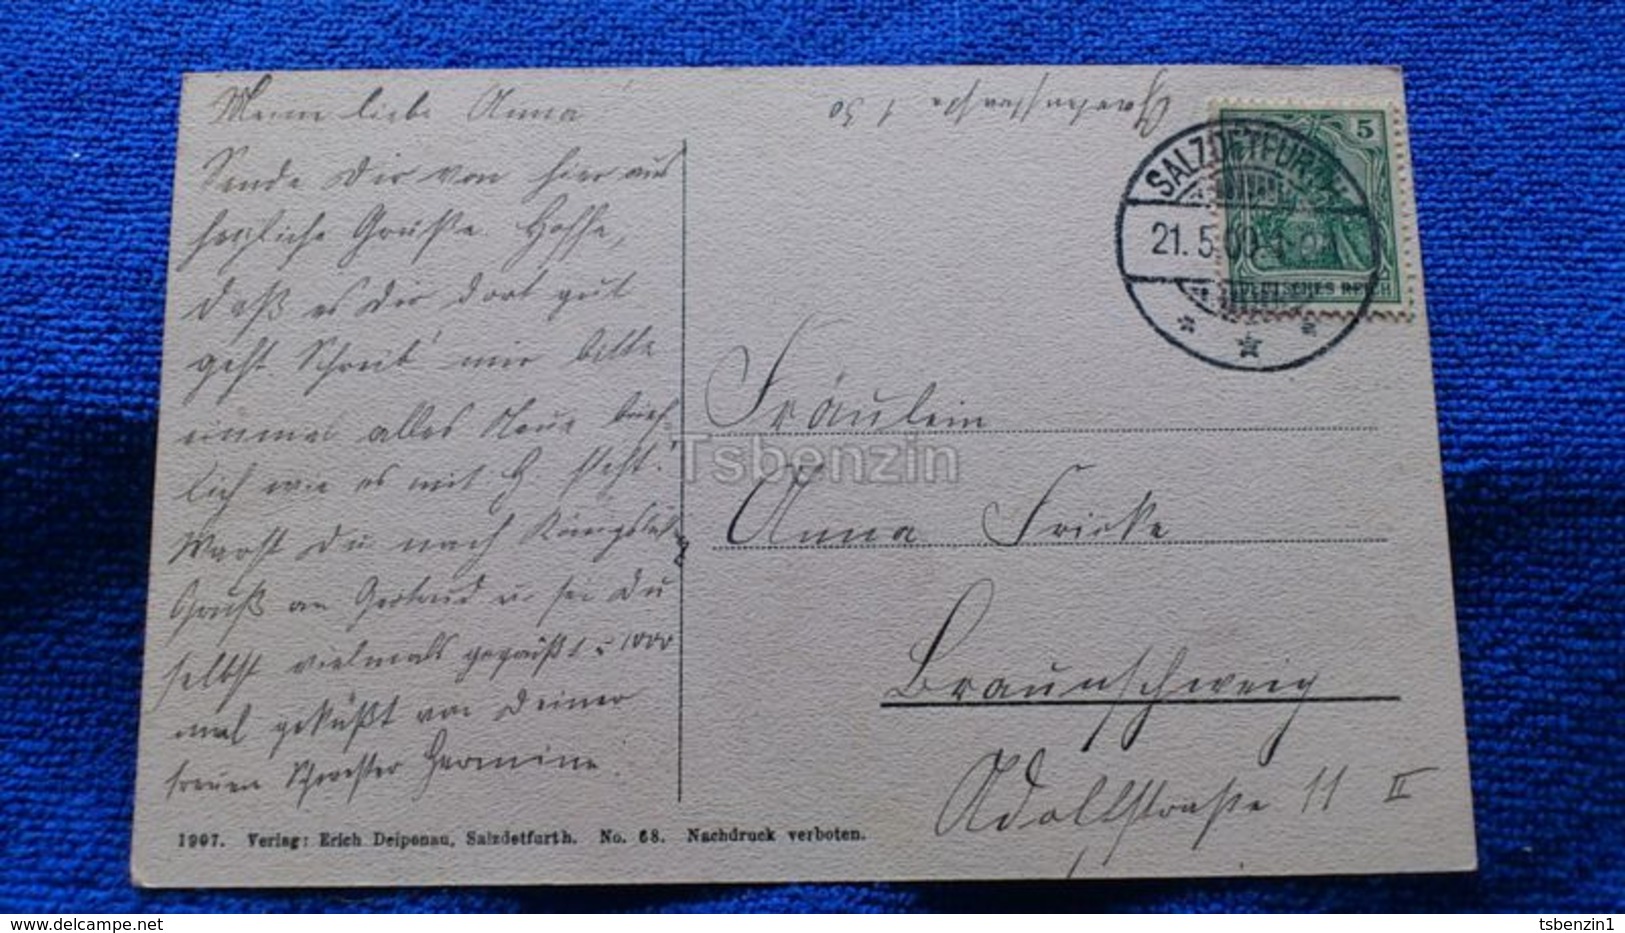 Meine liebe Anna!
Sende Dir von hier aus
herzliche Grüße. Hoffe,
daß es Dir dort gut
geht. Schreib' mir bitte
einmal alles Neue brief-
lich wie es mit H. steht.
Warst Du nach Königslutter
Gruß an Gertrud u. sei Du
selbst vielmals gegrüßt u. 1000
mal geküßt von Deiner
treuen Schwester Hermine.
1907. Verlag: Erich Deiponau, Salzdetfurth. No. 68. Nachdruck verboten.
1 30
SALZDETFURTH
21. 5. 09
5
DEUTSCHES REICH
Fräulein
Anna Fricke
Braunschweig
Adolfstraße 11 II
Tsbenzin
delcampe.net
tsbenzin1